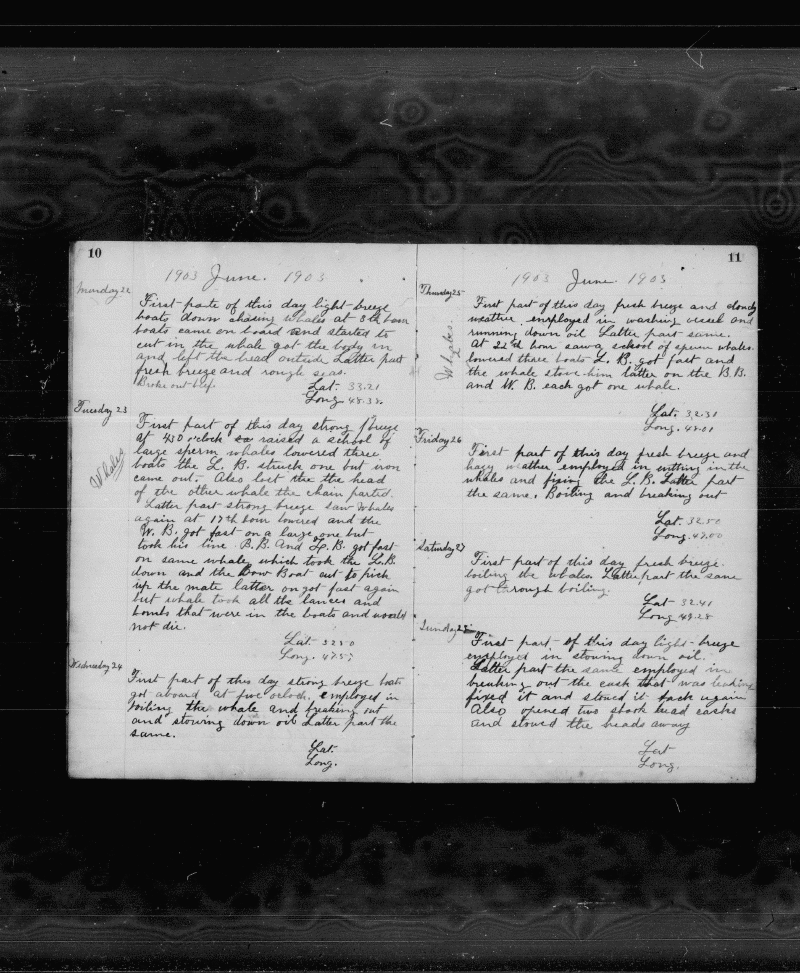 10
1903 June. 1903
Monday 22
First part of this day light breeze
boats down chasing whales at 8th hour
boats came on board and started to
cut in the whale got the body in
and left the head outside Latter part
fresh breeze and rough seas.
Broke out beef.
Lat. 33.21
Long. 48.38
Tuesday 23
First part of this day strong breeze
at 430 o'clock raised a school of
large sperm whales lowered three
boats the L. B. struck one but iron
came out. Also lost the the head
of the other whale the chain parted.
Latter part strong breeze saw Whales
Whales
again at 17th hour lowered and the
W. B. got fast on a large one but
took his line B.B. and L.B. got fast
on same whale which took the L.B.
down and the Bow Boat cut to pick
up the mate latter on got fast again
but whale took all the lances and
bombs that were in the boats and would
not die.
Lat. 32.50
Long. 47.57
Wednesday 24
First part of this day strong breeze boats
got aboard at five oclock, employed in
boiling the whale and breaking out
and stowing down oil Latter part the
same.
Lat.
Long.
11
1903 June 1903
Thursday 25
First part of this day fresh breeze and cloudy
weather employed in washing vessel and
running down oil Latter part same.
At 22d hour saw a school of sperm whales.
Whales.
lowered three boats L. B. got fast and
the whale stove him latter on the B.B.
and W. B. each got one whale.
Lat. 32.31
Long. 48.01
Friday 26
First part of this day fresh breeze and
hazy weather employed in cutting in the
whales and fixing the L.B. Latter part
the same. Boiling and breaking out
Lat. 32.50
Long. 49.00
Saturday 27
First part of this day fresh breeze.
boiling the whales Latter part the same
got through boiling.
Lat. 32.41
Long. 49.28
Sunday 28
First part of this day light breeze
employed in stowing down oil.
Latter part the same employed in
breaking out the cask that was leaking
fixed it and stowed it back again
Also opened two shook head casks
and stowed the heads away
Lat
Long.